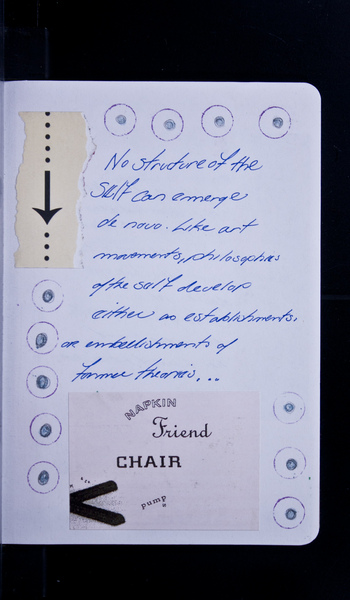 No structure of the
self can emerge
de novo. Like art
movements, philosophies
of the self develop
either as establishments,
or embellishments of
former theories...
NAPKIN
Friend
CHAIR
pump